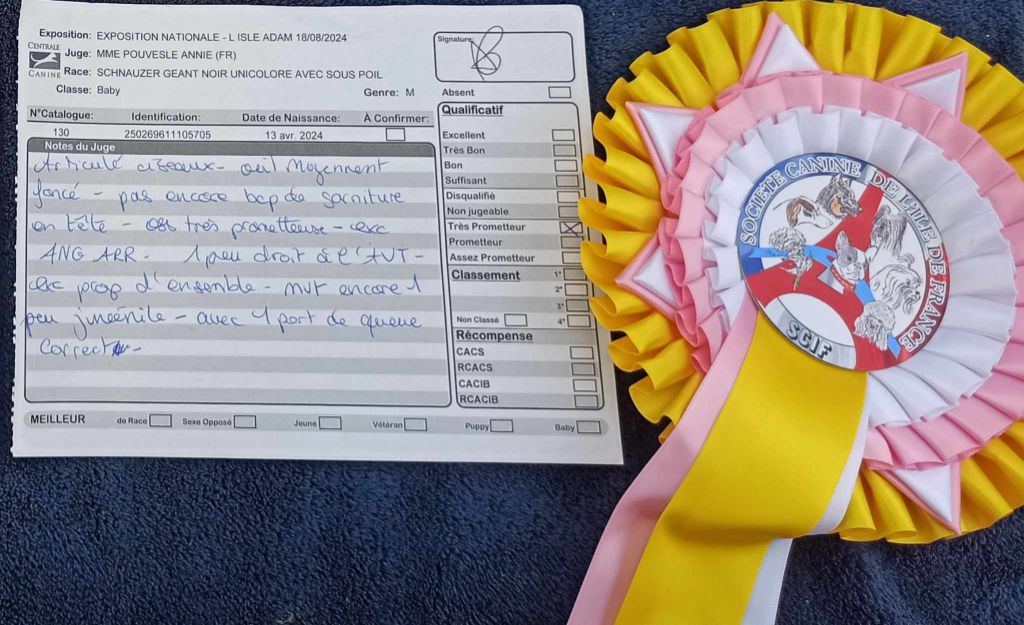 Exposition: EXPOSITION NATIONALE - L ISLE ADAM 18/08/2024
CENTRALE
CANINE
Juge: MME POUVESLE ANNIE (FR)
Race: SCHNAUZER GEANT NOIR UNICOLORE AVEC SOUS POIL
Classe: Baby
Genre: M
Signature:
Absent
N°Catalogue: Identification: Date de Naissance: À Confirmer:
130 250269611105705 13 avr. 2024
Notes du Juge
Articulé ciseaux - œil Moyennent
foncé - pas encore bcp de garniture
en tête - oss très prometteuse - exc
ANG ARR - 1 peu droit à l'AVT -
exc prop d'ensemble - mvt encore 1
peu juvénile - avec 1 port de queue
correct -
Qualificatif
Excellent
Très Bon
Bon
Suffisant
Disqualifié
Non jugeable
Très Prometteur
Prometteur
Assez Prometteur
Classement 1°
2°
3°
Non Classé 4°
Récompense
CACS
RCACS
CACIB
RCACIB
MEILLEUR de Race Sexe Opposé Jeune Vétéran Puppy Baby
SOCIÉTÉ CANINE DE L'ILE DE FRANCE
SCIF